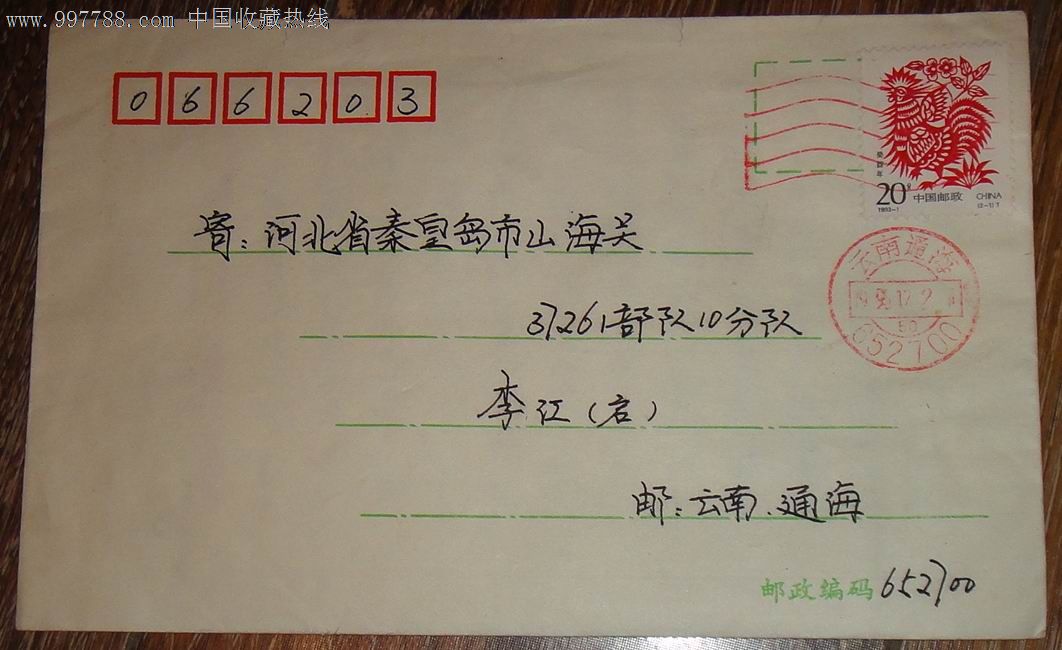 www.997788.com 中国收藏热线
066203
癸酉年
20分 中国邮政 CHINA
1993-1 (2-1)T
寄:河北省秦皇岛市山海关
云南通海
652700
37261部队10分队
李江(启)
邮:云南.通海
邮政编码 652700